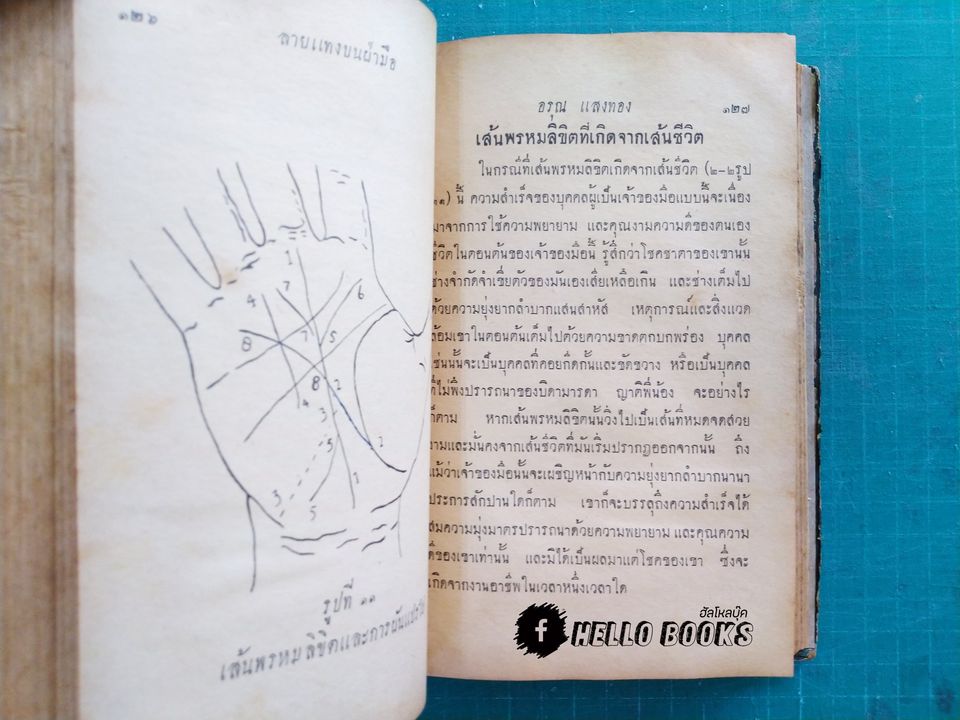 ๑๒๖
ลายแทงบนฝ่ามือ
1
7
4
6
8
7
5
8
2
4
3
5
2
3
5
1
รูปที่ ๑๑
เส้นพรหมลิขิตและการผันแปร
อรุณ แสงทอง ๑๒๗
เส้นพรหมลิขิตที่เกิดจากเส้นชีวิต
ในกรณีที่เส้นพรหมลิขิตเกิดจากเส้นชีวิต (๒-๒รูป
๑๑) นี้ ความสำเร็จของบุคคลผู้เป็นเจ้าของมือแบบนี้จะเนื่อง
มาจากการใช้ความพยายาม และคุณงามความดีของตนเอง
ชีวิตในตอนต้นของเจ้าของมือนี้ รู้สึกว่าโชคชาตาของเขานั้น
ช่างจำกัดจำเขี่ยตัวของมันเองเสียเหลือเกิน และช่างเต็มไป
ด้วยความยุ่งยากลำบากแสนสาหัส เหตุการณ์และสิ่งแวด
ล้อมเขาในตอนต้นเต็มไปด้วยความขาดตกบกพร่อง บุคคล
เช่นนั้นจะเป็นบุคคลที่คอยกีดกั้นและขัดขวาง หรือเป็นบุคคล
ที่ไม่พึงปรารถนาของบิดามารดา ญาติพี่น้อง จะอย่างไร
ก็ตาม หากเส้นพรหมลิขิตนั้นวิ่งไปเป็นเส้นที่หมดจดสวย
งามและมั่นคงจากเส้นชีวิตที่มันเริ่มปรากฏออกจากนั้น ถึง
แม้ว่าเจ้าของมือนั้นจะเผชิญหน้ากับความยุ่งยากลำบากนานา
ประการสักปานใดก็ตาม เขาก็จะบรรลุถึงความสำเร็จได้
สมความมุ่งมาตรปรารถนาด้วยความพยายาม และคุณความ
ดีของเขาเท่านั้น และมิได้เป็นผลมาแต่โชคของเขา ซึ่งจะ
เกิดจากงานอาชีพในเวลาหนึ่งเวลาใด
ฮัลโหลบุ๊ค
f HELLO BOOKS